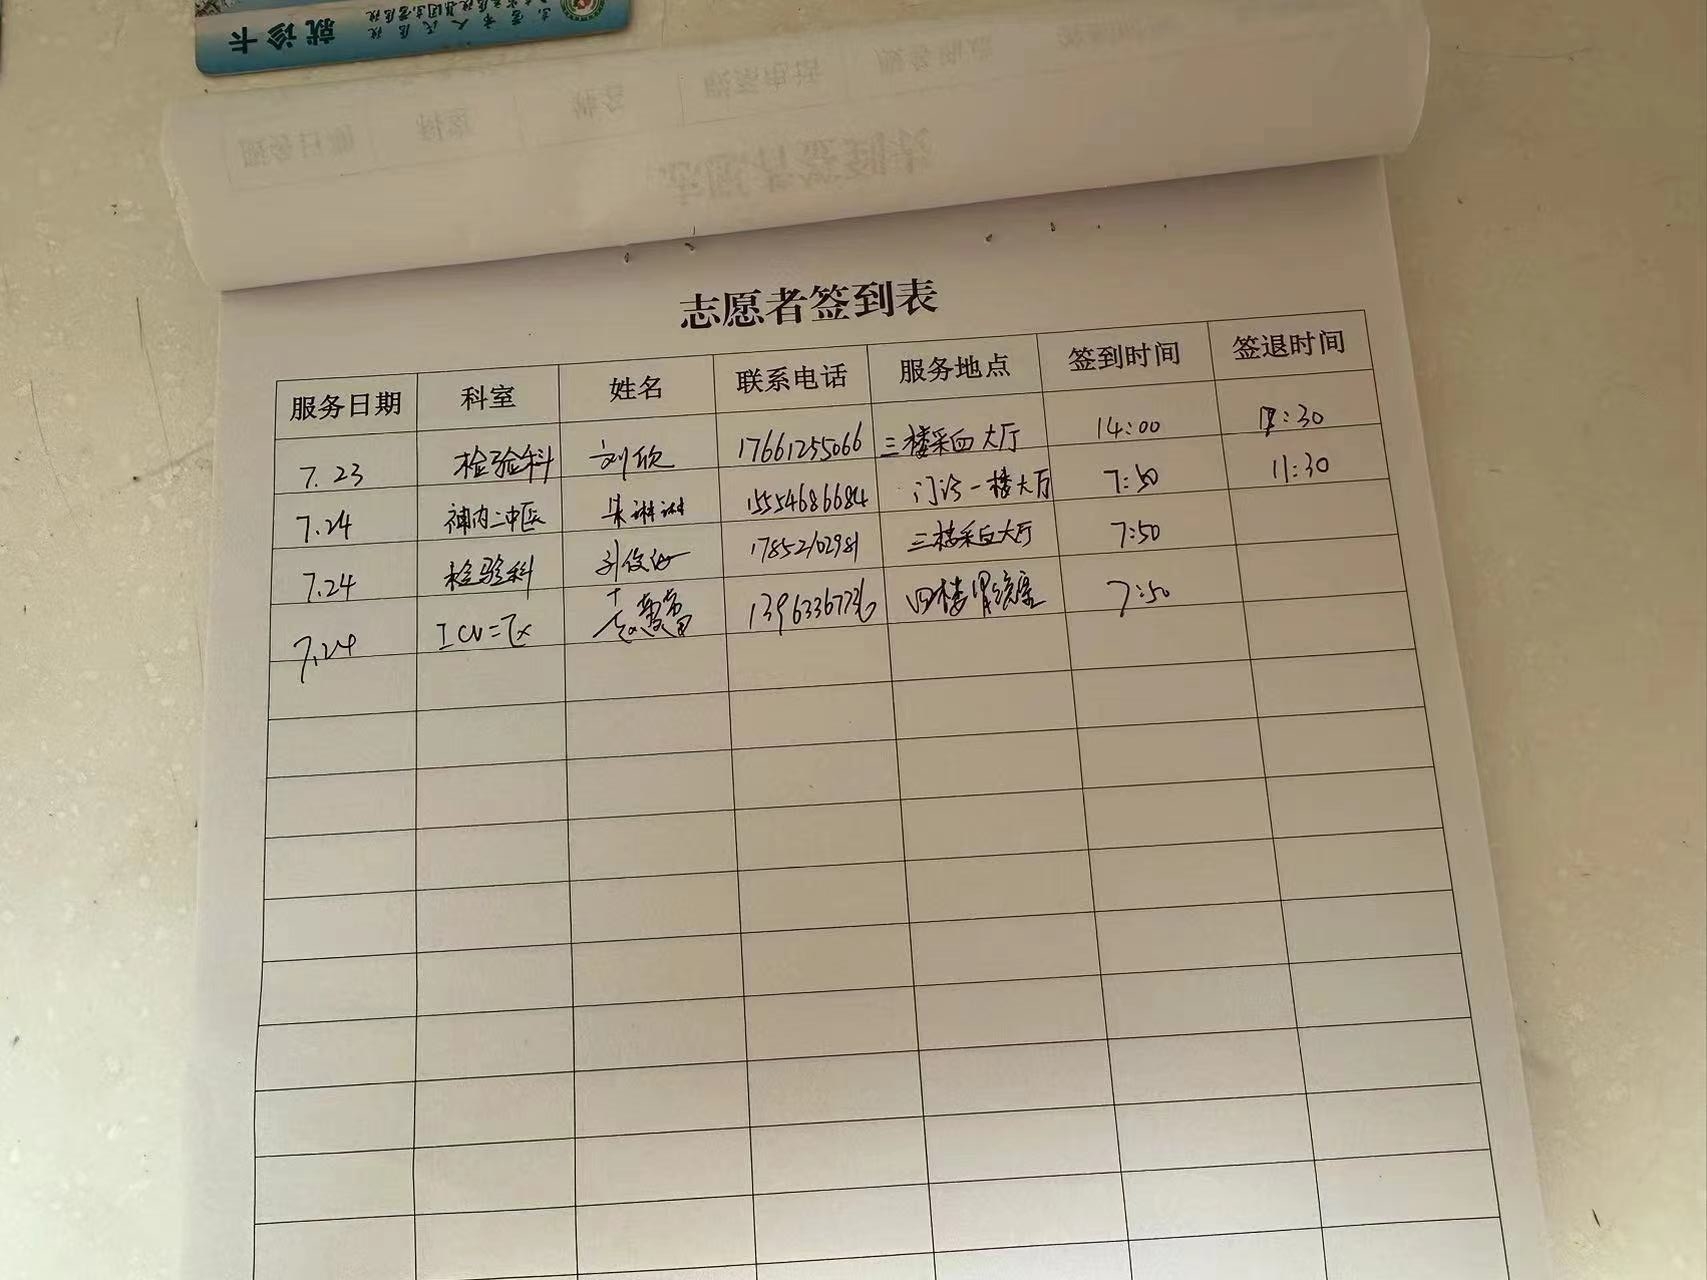 就诊卡
志愿者签到表
服务日期 科室 姓名 联系电话 服务地点 签到时间 签退时间
7.23 检验科 刘欣 17661255066 三楼采血大厅 14:00 :30
7.24 神内二中医 朱琳琳 15554686684 门诊一楼大厅 7:50 11:30
7.24 检验科 17852102981 三楼采血大厅 7:50
7.24 ICU二区 13963367736 四楼胃镜室 7:50